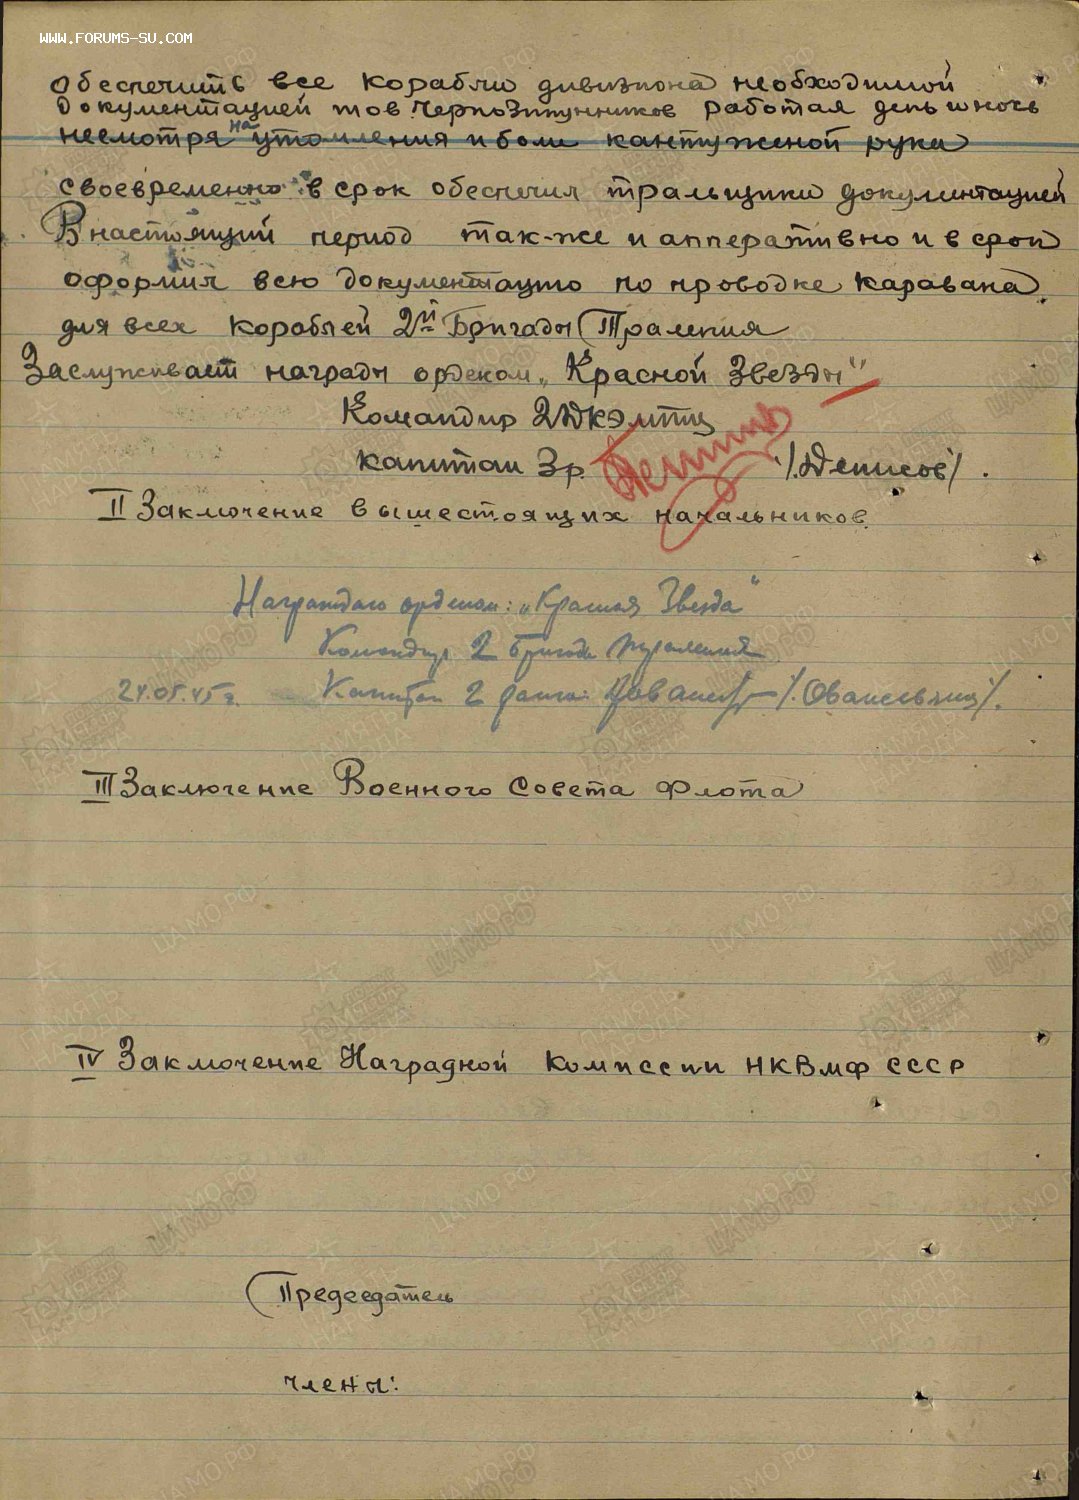 WWW.FORUMS-SU.COM
обеспечить все корабли дивизиона необходимой
документацией тов. Черпозипунников работая день и ночь
несмотря на утомления и боли кантуженой руки
своевременно в срок обеспечил тральщики документацией
В настоящий период так-же и апперативно и в срок
оформил всю документацию по проводке каравана
для всех кораблей 2й Бригады Траления
Заслуживает награды орденом „Красной Звезды"
Командир 2ДКЭМТЩ
капитан 3 р. /Денисов/.
II Заключение вышестоящих начальников.
Награждаю орденом: „Красная Звезда"
Командир 2 Бригады траления
24.05.45 г. Капитан 2 ранга: /Ованесьянц/.
III Заключение Военного Совета Флота
IV Заключение Наградной Комиссии НКВМФ СССР
Председатель
члены:
ЦАМО.РФ
ПАМЯТЬ НАРОДА